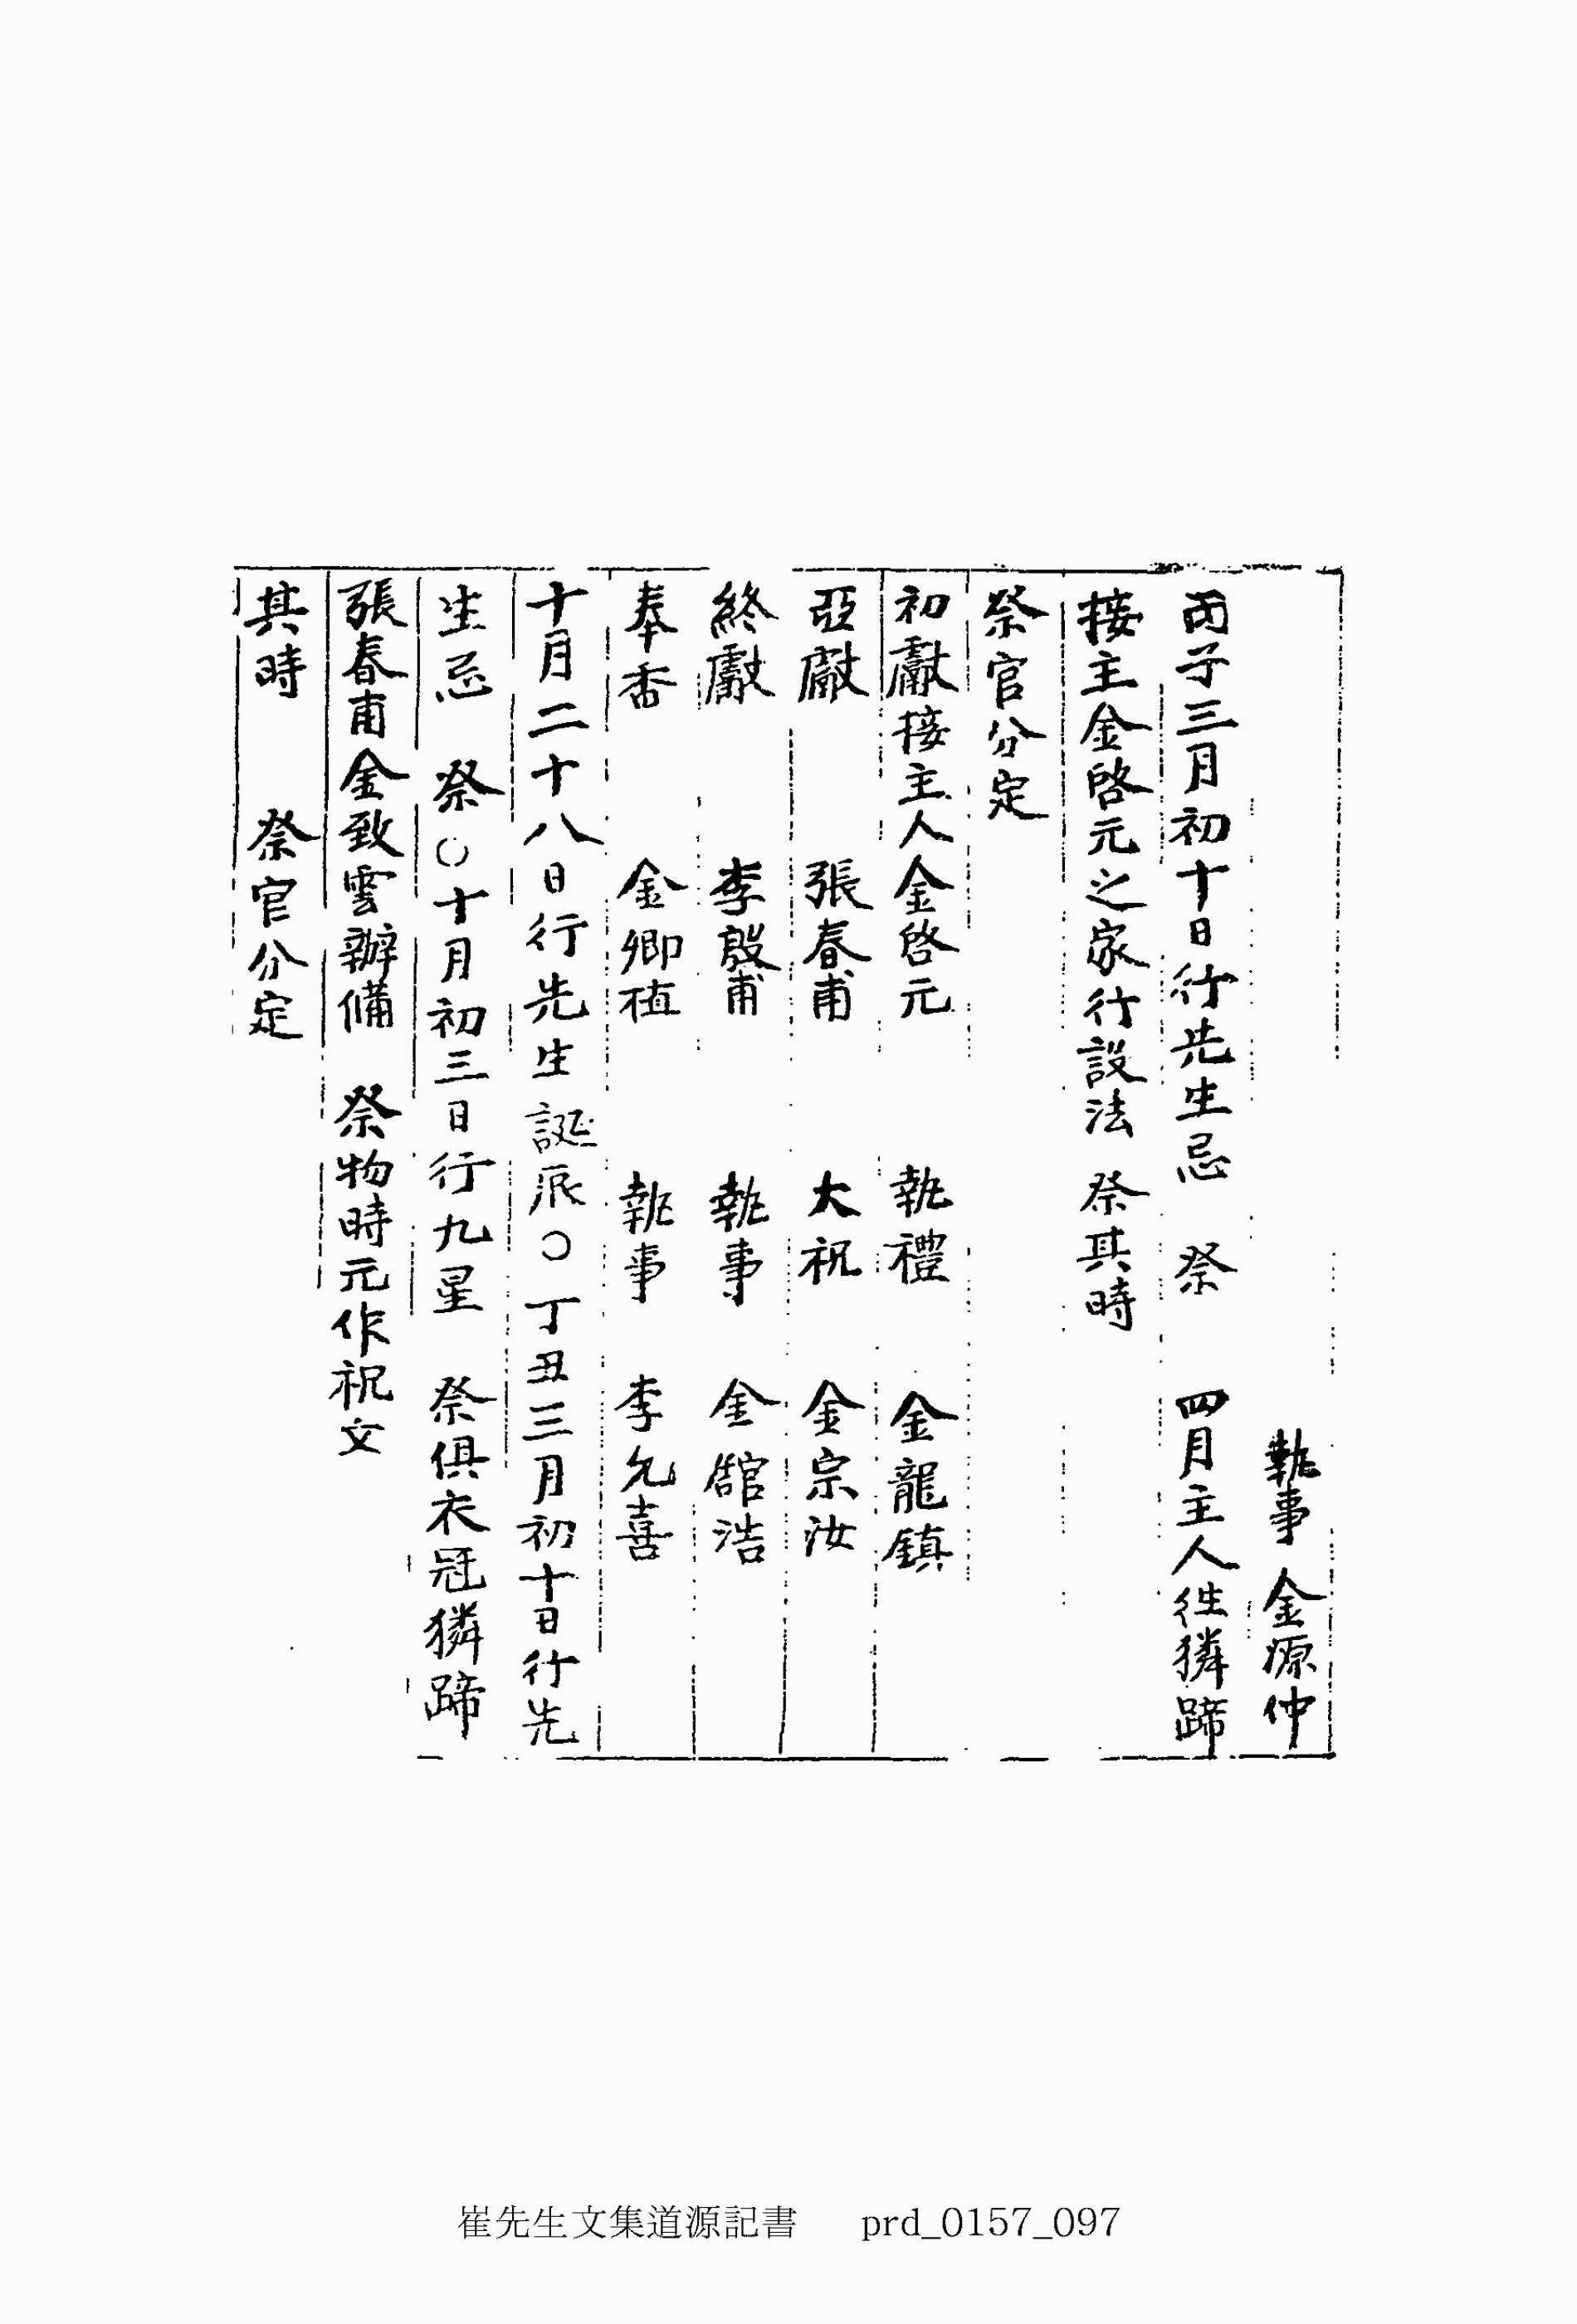 執事 金源仲
丙子三月初十日行先生忌 祭 四月主人往獜蹄
接主金啓元之家行設法 祭其時
祭官分定
初獻接主人金啓元 執禮 金龍鎮
亞獻 張春甫 大祝 金宗汝
終獻 李殷甫 執事 金錧浩
奉香 金卿植 執事 李允喜
十月二十八日行先生誕辰○丁丑三月初十日行先
生忌 祭○十月初三日行九星 祭俱衣冠獜蹄
張春甫金致雲辦備 祭物時元作祝文
其時 祭官分定
崔先生文集道源記書 prd_0157_097